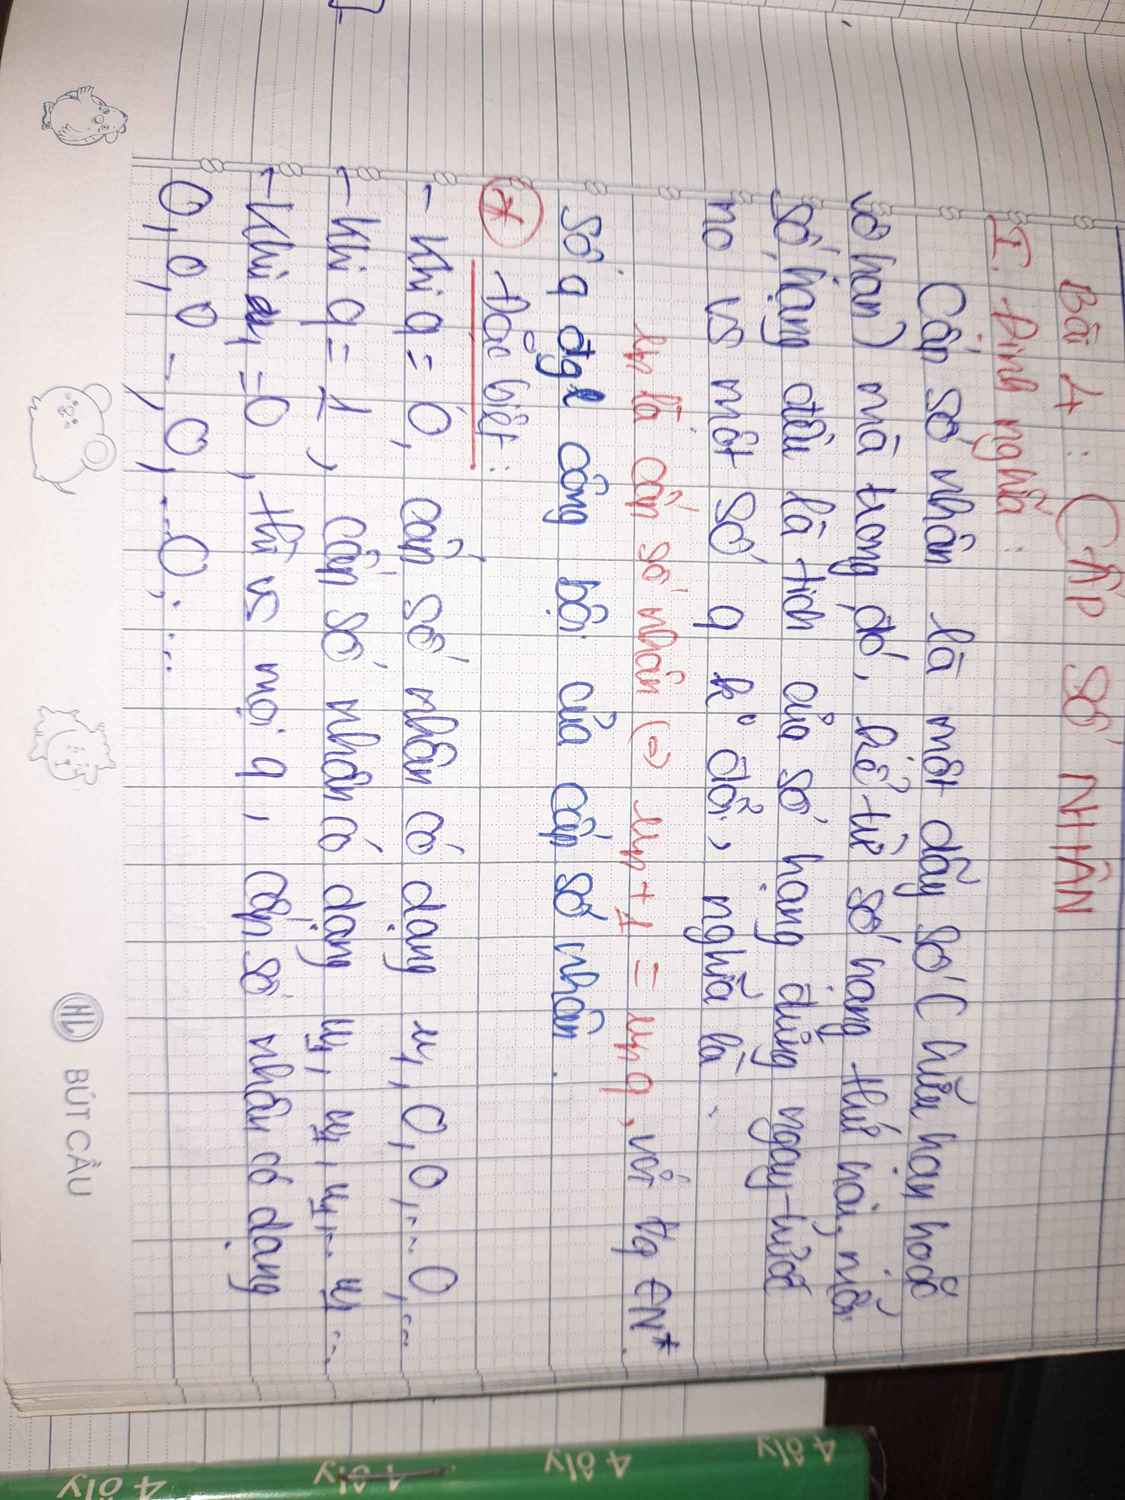 Bài 4: CẤP SỐ NHÂN
I. Định nghĩa:
Cấp số nhân là một dãy số (hữu hạn hoặc
vô hạn) mà trong đó, kể từ số hạng thứ hai, mỗi
số hạng đều là tích của số hạng đứng ngay trước
nó vs một số q k° đổi, nghĩa là:
un là cấp số nhân (=) un+1 = un q, với
∈N*
Số q đgl công bội của cấp số nhân.
* Đặc biệt:
- Khi q = 0, cấp số nhân có dạng u1, 0, 0,... 0,...
- Khi q = 1, cấp số nhân có dạng u1, u1, u1,... u1...
- Khi u1 = 0, thì vs mọi q, cấp số nhân có dạng
0, 0, 0 -, 0, ...0, ...
HL BÚT CẦU
4 ôly
4 ôly
4 ôly
4 ôly